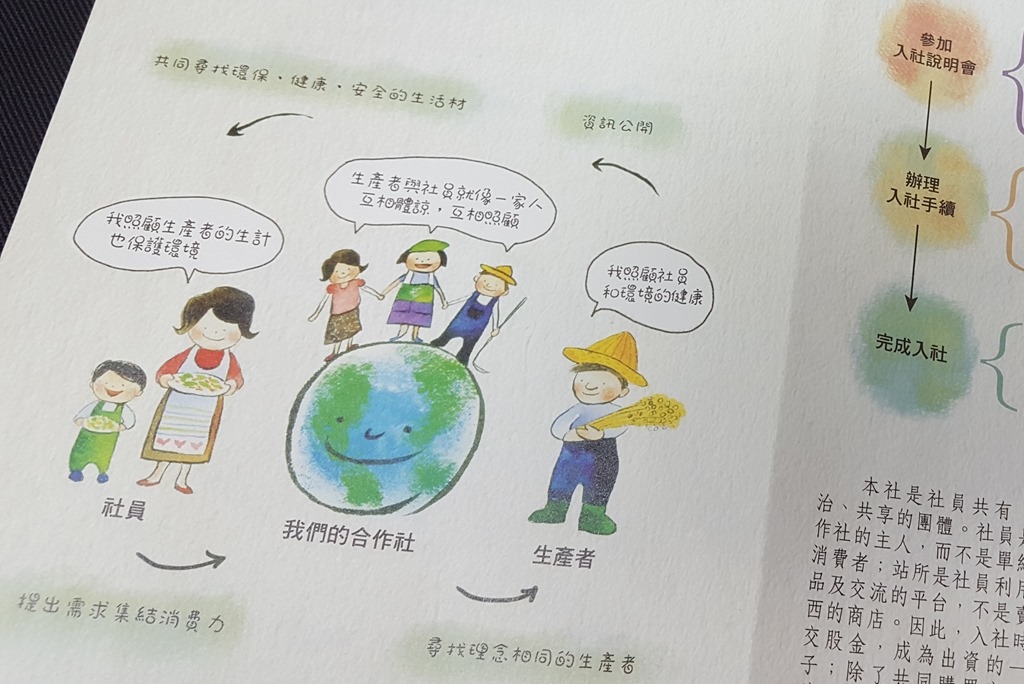 共同尋找環保、健康、安全的生活材
資訊公開
生產者與社員就像一家人
互相體諒，互相照顧
我照顧生產者的生計
也保護環境
我照顧社員
和環境的健康
社員
我們的合作社
生產者
提出需求集結消費力
尋找理念相同的生產者
參加
入社說明會
辦理
入社手續
完成入社
本社是社員共有
治、共享的團體。社員
作社的主人，而不是單
消費者；站所是社員利用
品及交流的平台，不是
西的商店。因此，入社時
交股金，成為出資的一
子；除了共同購